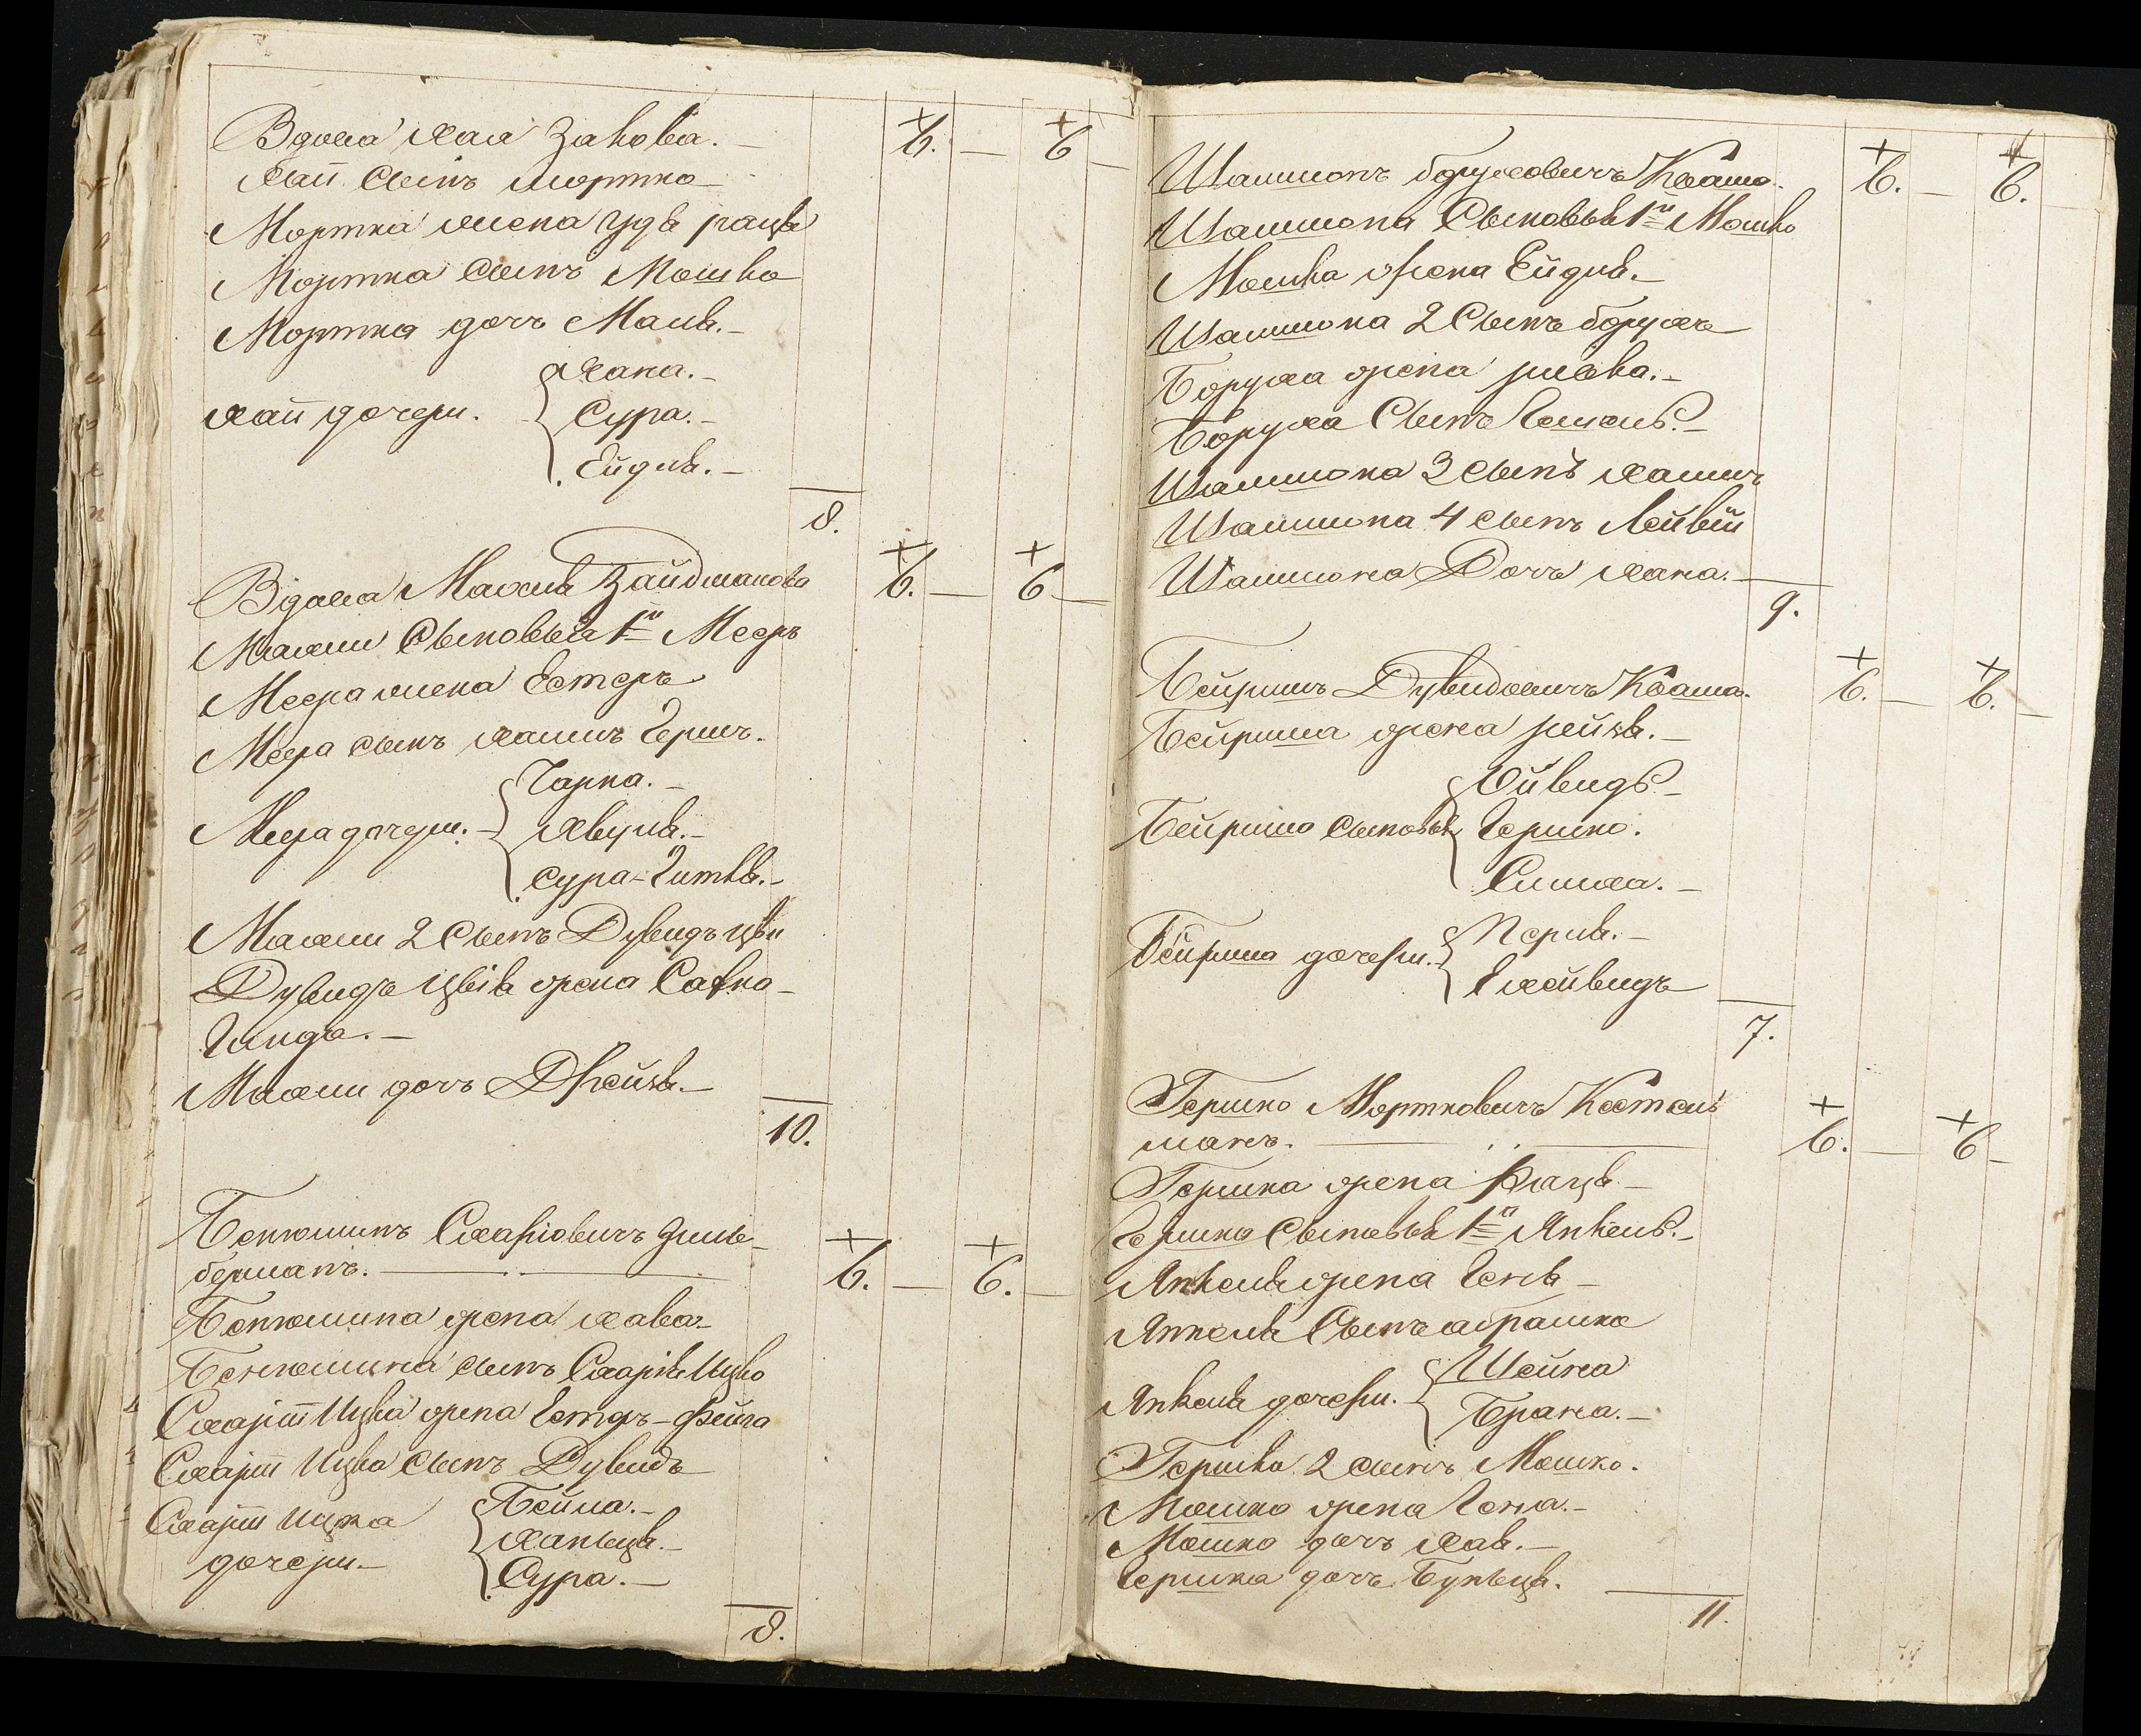 Вдова Хая Закова. — 6. — 6 —
Хаи сынъ Мортко —
Мортка жена Удя рацѣ
Мортка сынъ Мошко
Мортка дочъ Маля. —
Хана. —
Хаи дочери. Сура. —
Ейдля. —
8.
Вдова Махля Зайдманова 6. — 6 —
Махли сыновья 1й Мееръ
Меера жена Естеръ
Меера сынъ Хаимъ Гершъ.
Чарна. —
Меера дочери. — Хвуля. —
Сура-Гиткѣ. —
Махли 2 сынъ Дувидъ Цви
Дувидъ Цвія жена
Гинда. —
Махли дочъ Дрейзя. —
10.
Бенюминъ Схаріовичъ Зиль-
берманъ. — 6. — 6. —
Бенюмина жена Хава —
Бенюмина сынъ Схарія Ицко
Схаріи Ицка жена Естеръ-Фейга
Схаріи Ицка сынъ Дувидъ
Схаріи Ицка Бейла. —
дочери — Ханьця. —
Сура. —
8.
Шашмонъ Боруховичъ Кваша. 6. — 6.
Шашмона сыновья 1й Мошко
Мошка жена Ейдля. —
Шашмона 2 сынъ Борухъ
Боруха жена ривка. —
Боруха сынъ —
Шашмона 3 сынъ Хаимъ
Шашмона 4 сынъ Лейвій
Шашмона Дочъ Хана. —
9.
Бейришъ Дувидовичъ Кваша. 6. — 6. —
Бейриша жена рейзя. —
Ойвидъ —
Бейриша сыновья Гершко.
Симха. —
Бейриша дочери. Перля. —
Ехейвидъ
7.
Гершко Мортковичъ Костель
манъ. — 6. — 6 —
Гершка жена Рацѣ —
Гершка сыновья 1й Янкель. —
Янкеля жена Геня —
Янкеля сынъ абрамко
Шейна
Янкеля дочери. Брана. —
Гершка 2 сынъ Мошко.
Мошко жена Гена. —
Мошко дочъ Хая. —
Гершка дочъ Буньця.
11.